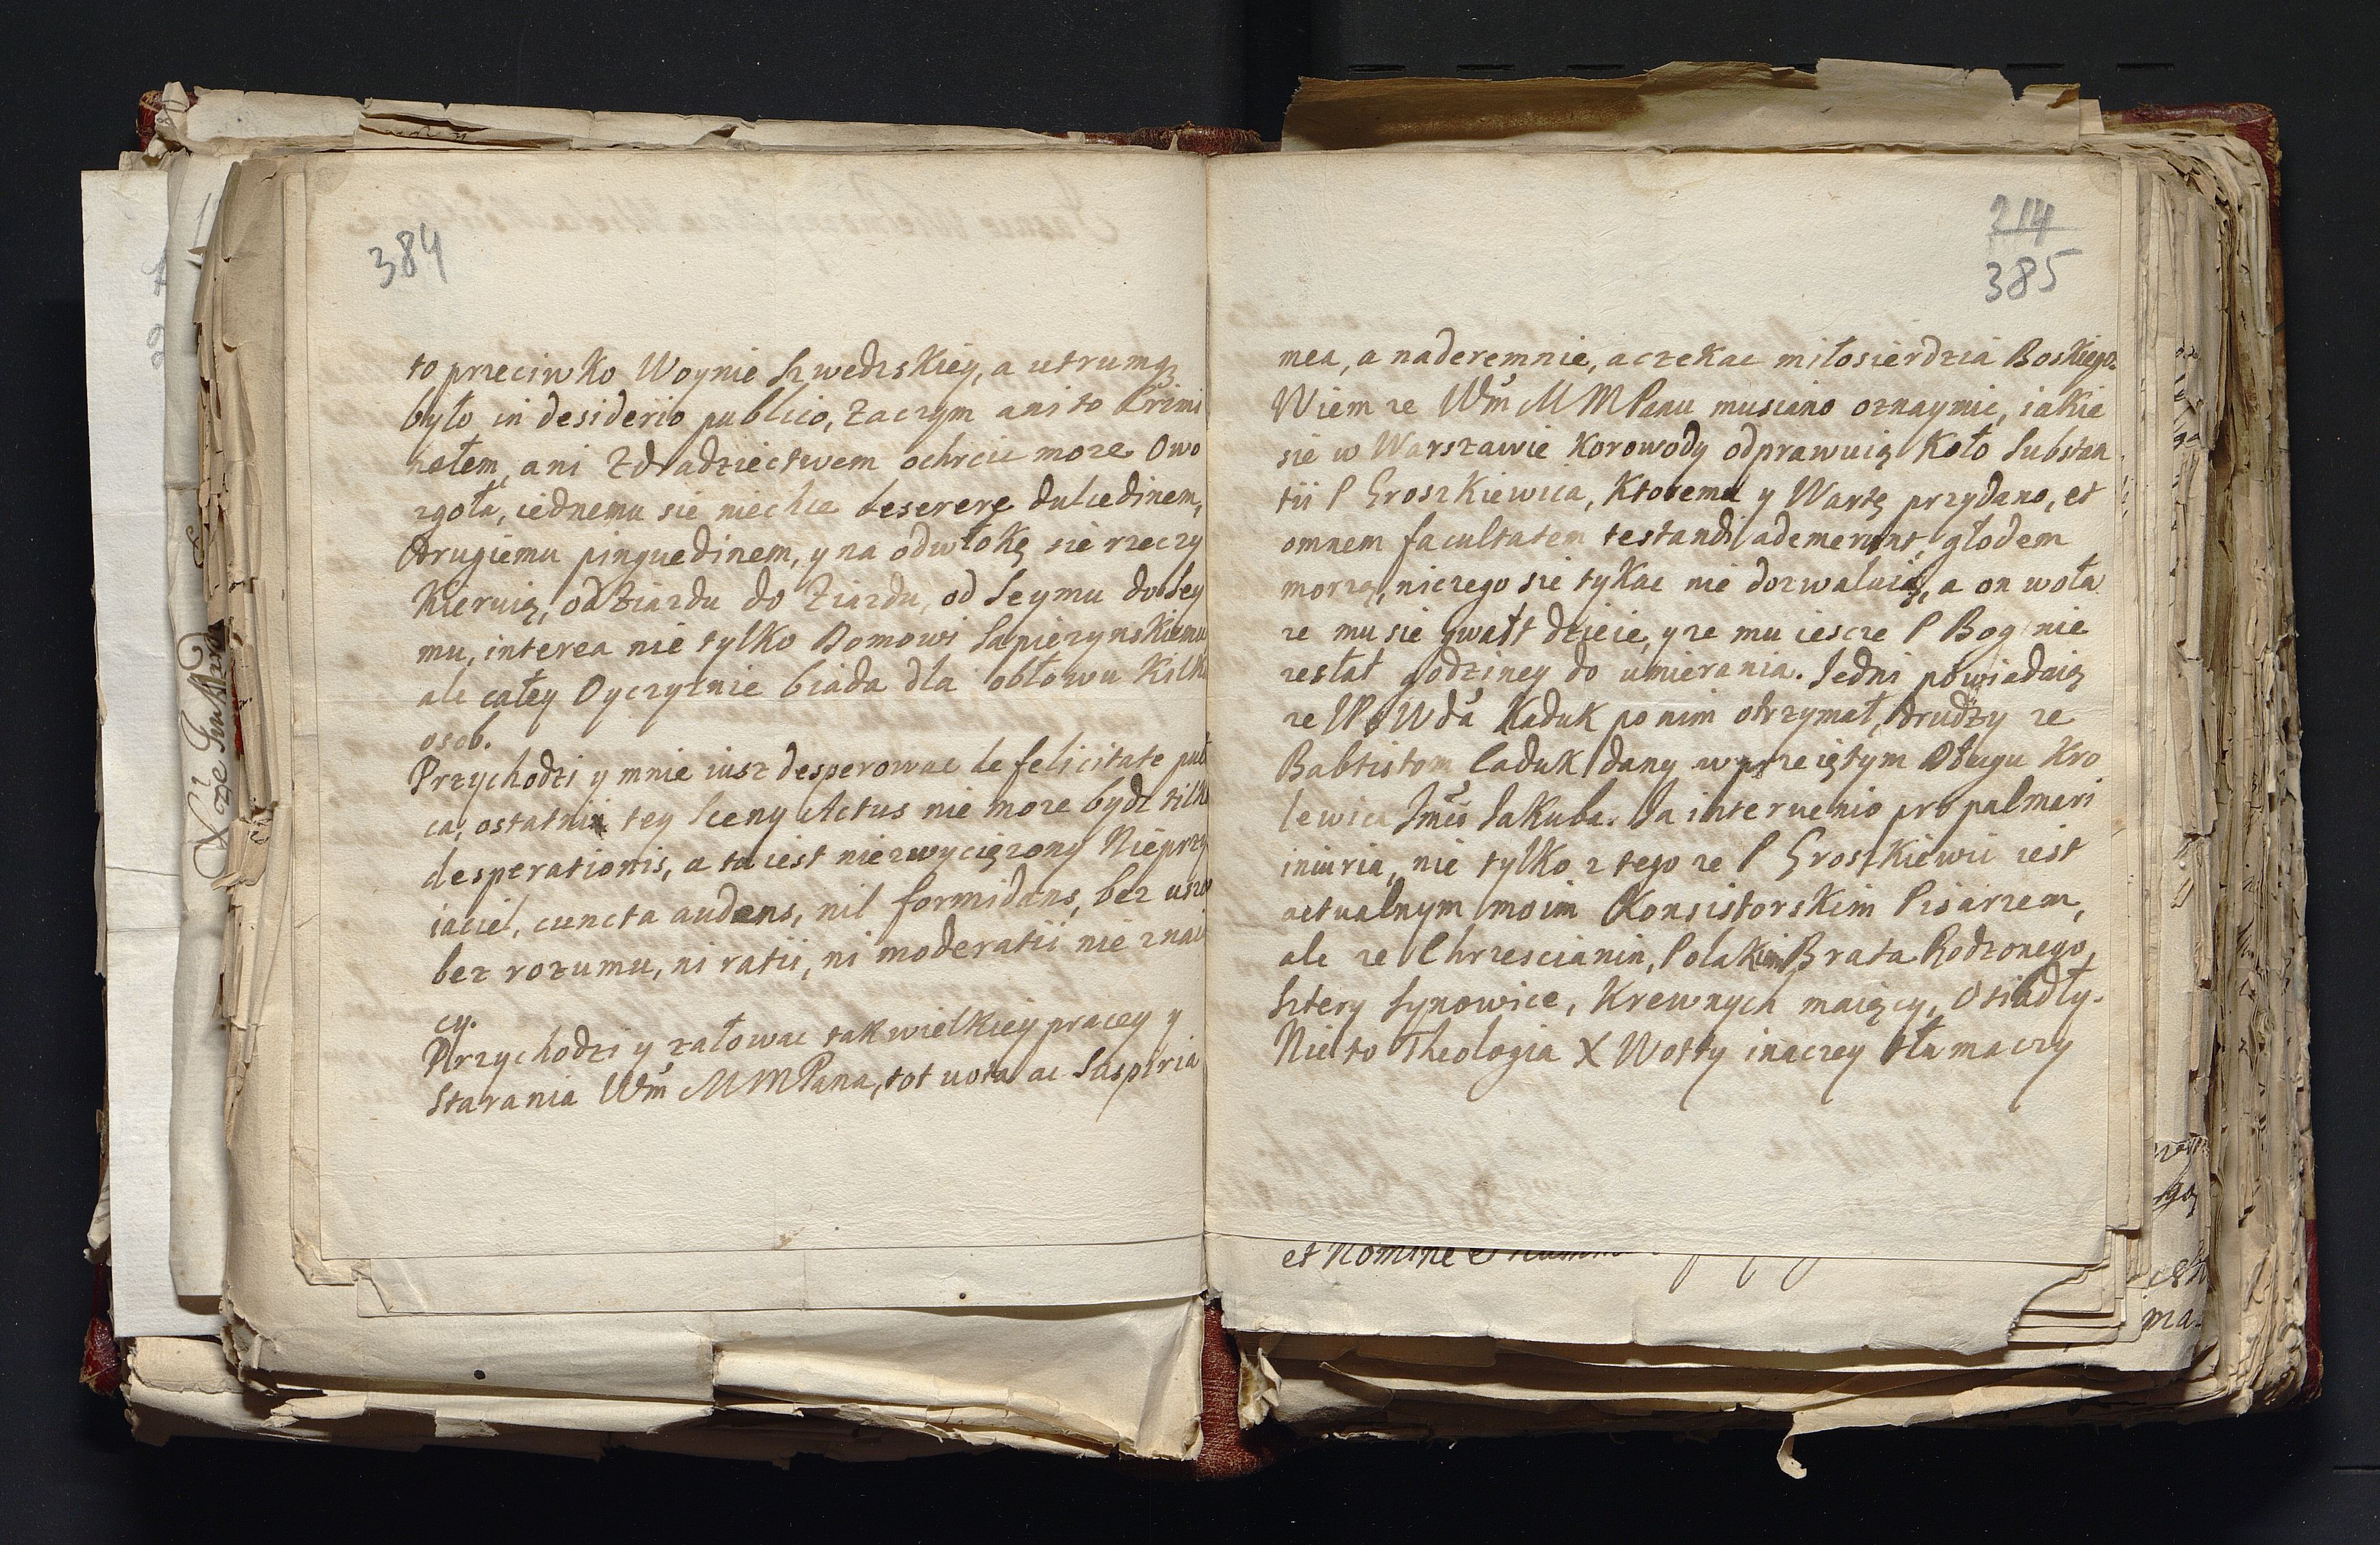 384
to przeciwko Woynie Szwedzkiey, a utrumq;
było in desiderio publico, zaczym ani to Crimi
nałem, ani Zdradziectwem ochrcic moze. Owo
zgoła, iednemu sie niechce deserere dulcedinem,
drugiemu pinguedinem, y na odwłokę sie rzeczy
kieruią, od Ziazdu do Ziazdu, od Seymu do Sey
mu, interea nie tylko Domowi Sapiezynskiemu
ale całey Oyczyznie biada dla obłowu Kilku
osob.
Przychodzi y mnie iusz desperowac de felicitate publi
ca, ostatni tey Sceny Actus nie moze bydz tilko
desperationis, a tu iest niezwycięzony Nieprzy
iaciel, cuncta audens, nil formidans, bez
bez rozumu, ni ratii, ni moderatii nie znaią
cy.
Przychodzi y załowac tak wielkiey pracey y
starania Wm MMPana, tot vota ac suspiria
214
385
mea, a naderemnie, a czekac miłosierdzia Boskiego.
Wiem ze Wm MMPanu musiano oznaymic, iakie
sie w Warszawie Korowody odprawuią Koło Substan
tii P Groszkiewica, Ktoremu y Wartę przydano, et
omnem facultatem testandi ademerunt, głodem
morzą, niczego sie tykac nie dozwalaią, a on woła
ze mu sie gwałt dzieie, y ze mu iescze P Bog nie
zesłał godziney do umierania. Jedni powiadaią
ze JP Wda Kaduk po nim otrzymał, drudzy ze
Babtistom Caduk dany w przeiętym Długu Kro
lewica Jmci Jakuba. Ja intervenio pro palmari
iniuria, nie tylko z tego ze P Groszkiewic iest
actualnym moim Konsistorskim Pisarzem,
ale ze Chrzescianin, Polak Brata Rodzonego,
Sztery Synowice, Krewnych maiący, Osiadły.
Nie to Theologia X Wotty inaczey tłamaczy
et Nomine